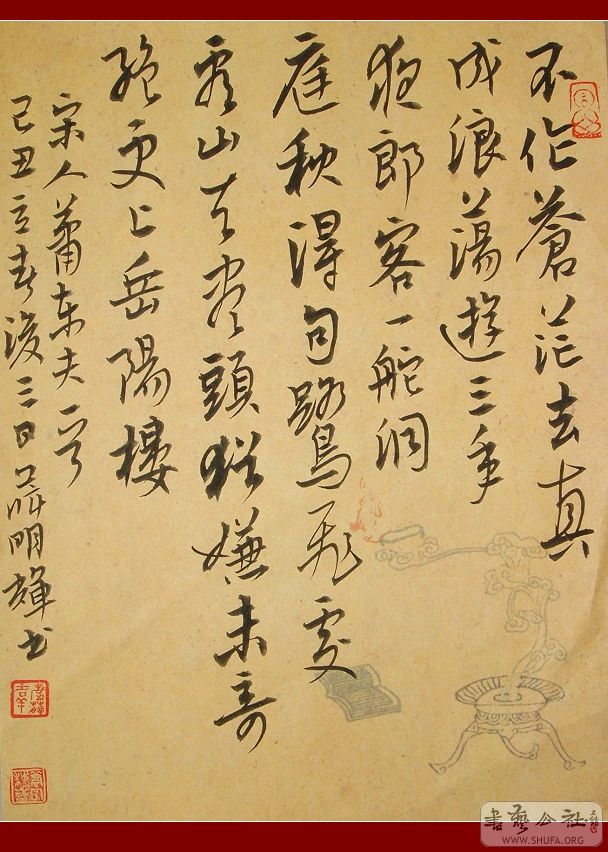 不作蒼茫去真
成浪蕩遊三年
夜郎客一舵洞
庭秋得句鷺飛處
看山天盡頭猶嫌未奇
絕更上岳陽樓
宋人蕭東夫
己丑立春後三日明書
書藝公社
WWW.SHUFA.ORG